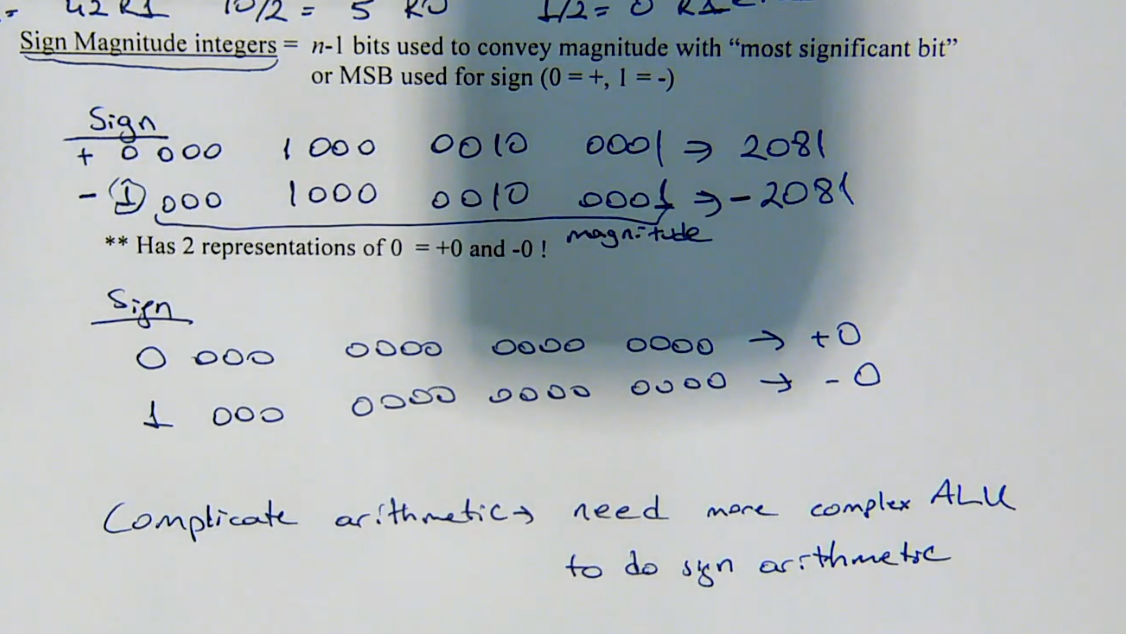 = 42 R1 10/2 = 5 R0 1/2 = 0 R1
Sign Magnitude integers = n-1 bits used to convey magnitude with “most significant bit”
or MSB used for sign (0 = +, 1 = -)
Sign
+ 0 000 1000 0010 0001 ⇒ 2081
- 1 000 1000 0010 0001 ⇒ - 2081
magnitude
** Has 2 representations of 0 = +0 and -0 !
Sign
0 000 0000 0000 0000 → +0
1 000 0000 0000 0000 → - 0
Complicate arithmetic → need more complex ALU
to do sign arithmetic